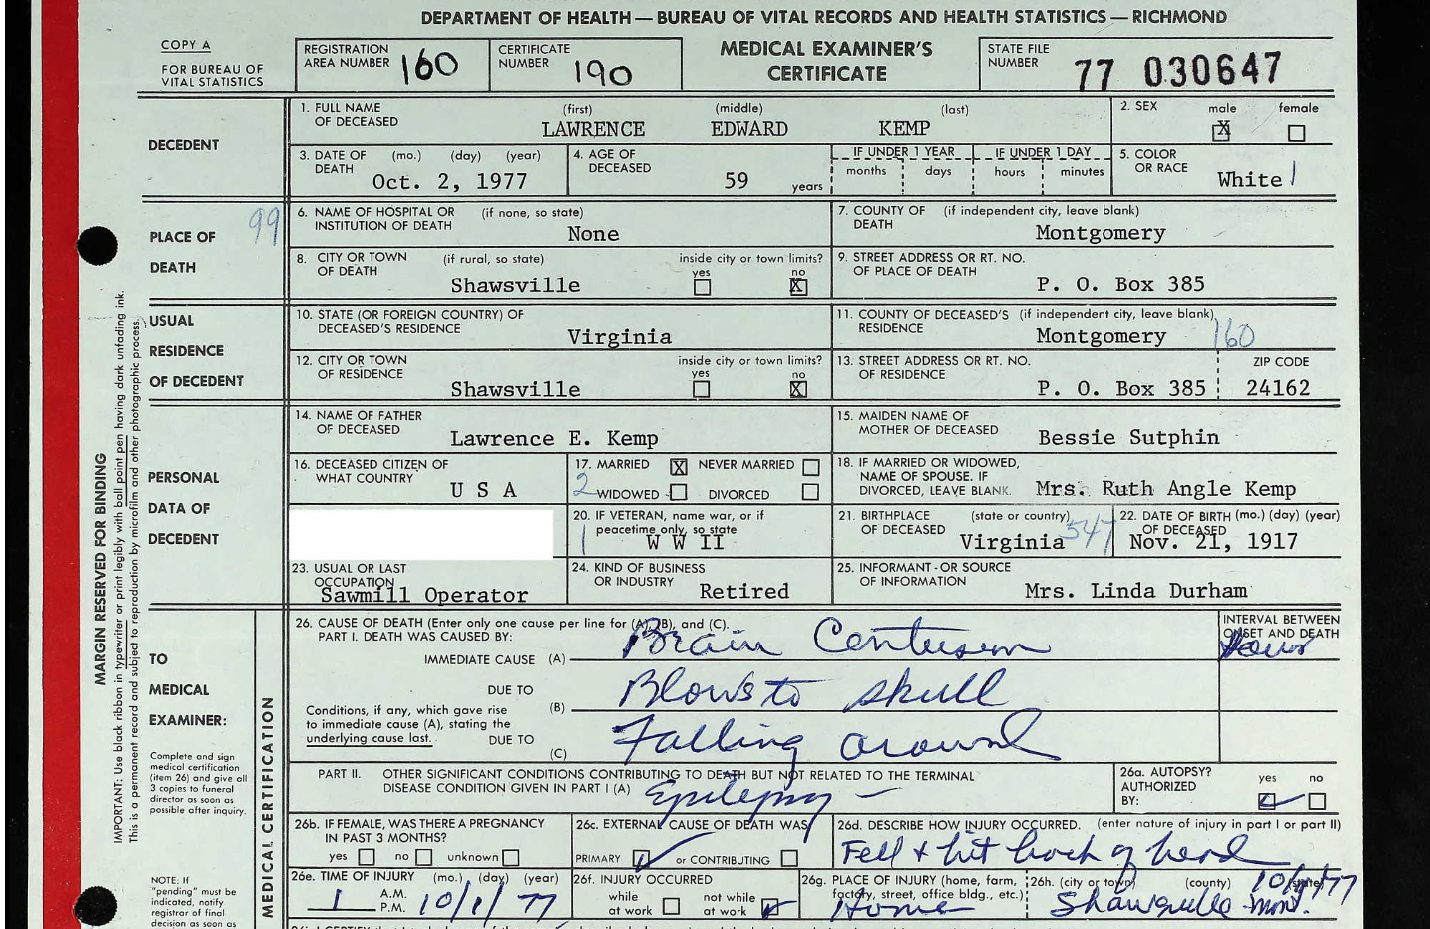 DEPARTMENT OF HEALTH — BUREAU OF VITAL RECORDS AND HEALTH STATISTICS — RICHMOND
COPY A
FOR BUREAU OF
VITAL STATISTICS
REGISTRATION
AREA NUMBER 160
CERTIFICATE
NUMBER 190
MEDICAL EXAMINER'S
CERTIFICATE
STATE FILE
NUMBER 77 030647
DECEDENT
1. FULL NAME (first) (middle) (last)
OF DECEASED LAWRENCE EDWARD KEMP
2. SEX male female
X
3. DATE OF (mo.) (day) (year)
DEATH Oct. 2, 1977
4. AGE OF
DECEASED 59 years
IF UNDER 1 YEAR IF UNDER 1 DAY
months days hours minutes
5. COLOR
OR RACE White 1
PLACE OF
DEATH
99
6. NAME OF HOSPITAL OR (if none, so state)
INSTITUTION OF DEATH None
7. COUNTY OF (if independent city, leave blank)
DEATH Montgomery
8. CITY OR TOWN (if rural, so state) inside city or town limits?
OF DEATH yes no
Shawsville X
9. STREET ADDRESS OR RT. NO.
OF PLACE OF DEATH
P. O. Box 385
USUAL
RESIDENCE
OF DECEDENT
10. STATE (OR FOREIGN COUNTRY) OF
DECEASED'S RESIDENCE Virginia
11. COUNTY OF DECEASED'S (if independent city, leave blank)
RESIDENCE Montgomery 160
12. CITY OR TOWN inside city or town limits?
OF RESIDENCE yes no
Shawsville X
13. STREET ADDRESS OR RT. NO. ZIP CODE
OF RESIDENCE
P. O. Box 385 24162
PERSONAL
DATA OF
DECEDENT
14. NAME OF FATHER
OF DECEASED Lawrence E. Kemp
15. MAIDEN NAME OF
MOTHER OF DECEASED Bessie Sutphin
16. DECEASED CITIZEN OF
WHAT COUNTRY U S A
17. MARRIED X NEVER MARRIED
2 WIDOWED DIVORCED
18. IF MARRIED OR WIDOWED,
NAME OF SPOUSE. IF
DIVORCED, LEAVE BLANK. Mrs. Ruth Angle Kemp
20. IF VETERAN, name war, or if
peacetime only, so state
1 W W II
21. BIRTHPLACE (state or country)
OF DECEASED Virginia 547
22. DATE OF BIRTH (mo.) (day) (year)
OF DECEASED
Nov. 21, 1917
23. USUAL OR LAST
OCCUPATION
Sawmill Operator
24. KIND OF BUSINESS
OR INDUSTRY Retired
25. INFORMANT - OR SOURCE
OF INFORMATION Mrs. Linda Durham
MARGIN RESERVED FOR BINDING
IMPORTANT: Use black ribbon in typewriter or print legibly with ball point pen having dark unfading ink.
This is a permanent record and subject to reproduction by microfilm and other photographic process.
TO
MEDICAL
EXAMINER:
Complete and sign
medical certification
(item 26) and give all
3 copies to funeral
director as soon as
possible after inquiry.
NOTE: If
"pending" must be
indicated, notify
registrar of final
decision as soon as
MEDICAL CERTIFICATION
26. CAUSE OF DEATH (Enter only one cause per line for (A), (B), and (C).
PART I. DEATH WAS CAUSED BY:
INTERVAL BETWEEN
ONSET AND DEATH
IMMEDIATE CAUSE (A) Brain Contusion Hours
DUE TO
(B) Blows to skull
Conditions, if any, which gave rise
to immediate cause (A), stating the
underlying cause last. DUE TO
(C) Falling around
PART II. OTHER SIGNIFICANT CONDITIONS CONTRIBUTING TO DEATH BUT NOT RELATED TO THE TERMINAL
DISEASE CONDITION GIVEN IN PART I (A) Epilepsy —
26a. AUTOPSY?
AUTHORIZED yes no
BY:
26b. IF FEMALE, WAS THERE A PREGNANCY
IN PAST 3 MONTHS?
yes no unknown
26c. EXTERNAL CAUSE OF DEATH WAS
PRIMARY or CONTRIBUTING
26d. DESCRIBE HOW INJURY OCCURRED. (enter nature of injury in part I or part II)
Fell + hit back of head
26e. TIME OF INJURY (mo.) (day) (year)
1 A.M.
P.M. 10/1/77
26f. INJURY OCCURRED
while not while
at work at work
26g. PLACE OF INJURY (home, farm,
factory, street, office bldg., etc.)
Home
26h. (city or town) (county) (state)
Shawsville Mont.